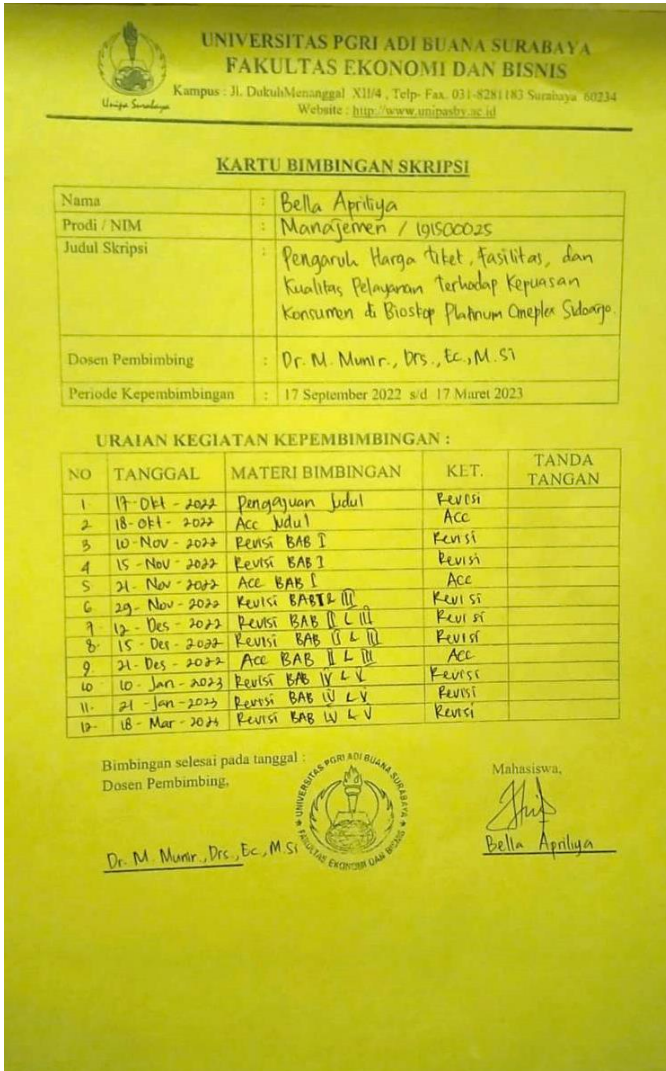 UNIVERSITAS PGRI ADI BUANA SURABAYA
FAKULTAS EKONOMI DAN BISNIS
Kampus : Jl. DukuhMenanggal XII/4 , Telp- Fax. 031-8281183 Surabaya 60234
Website : http://www.unipasby.ac.id
Unipa Surabaya
KARTU BIMBINGAN SKRIPSI
Nama : Bella Apriliya
Prodi / NIM : Manajemen / 191500025
Judul Skripsi : Pengaruh Harga tiket, Fasilitas, dan
Kualitas Pelayanan Terhadap Kepuasan
Konsumen di Bioskop Platinum Cineplex Sidoarjo.
Dosen Pembimbing : Dr. M. Munir., Drs., Ec., M.Si
Periode Kepembimbingan : 17 September 2022 s/d 17 Maret 2023
URAIAN KEGIATAN KEPEMBIMBINGAN :
NO TANGGAL MATERI BIMBINGAN KET. TANDA TANGAN
1. 17-Okt-2022 Pengajuan Judul Revisi
2. 18-Okt-2022 Acc Judul Acc
3 10-Nov-2022 Revisi BAB I Revisi
4 15-Nov-2022 Revisi BAB I Revisi
5 21-Nov-2022 Acc BAB I Acc
6 29-Nov-2022 Revisi BAB II & III Revisi
7. 12-Des-2022 Revisi BAB II & III Revisi
8. 15-Des-2022 Revisi BAB II & III Revisi
9. 21-Des-2022 Acc BAB II & III Acc
10 10-Jan-2023 Revisi BAB IV & V Revisi
11. 21-Jan-2023 Revisi BAB IV & V Revisi
12. 18-Mar-2024 Revisi BAB IV & V Revisi
Bimbingan selesai pada tanggal :
Dosen Pembimbing,
Mahasiswa,
UNIVERSITAS PGRI ADI BUANA SURABAYA
FAKULTAS EKONOMI DAN BISNIS
Dr. M. Munir., Drs., Ec., M.Si
Bella Apriliya